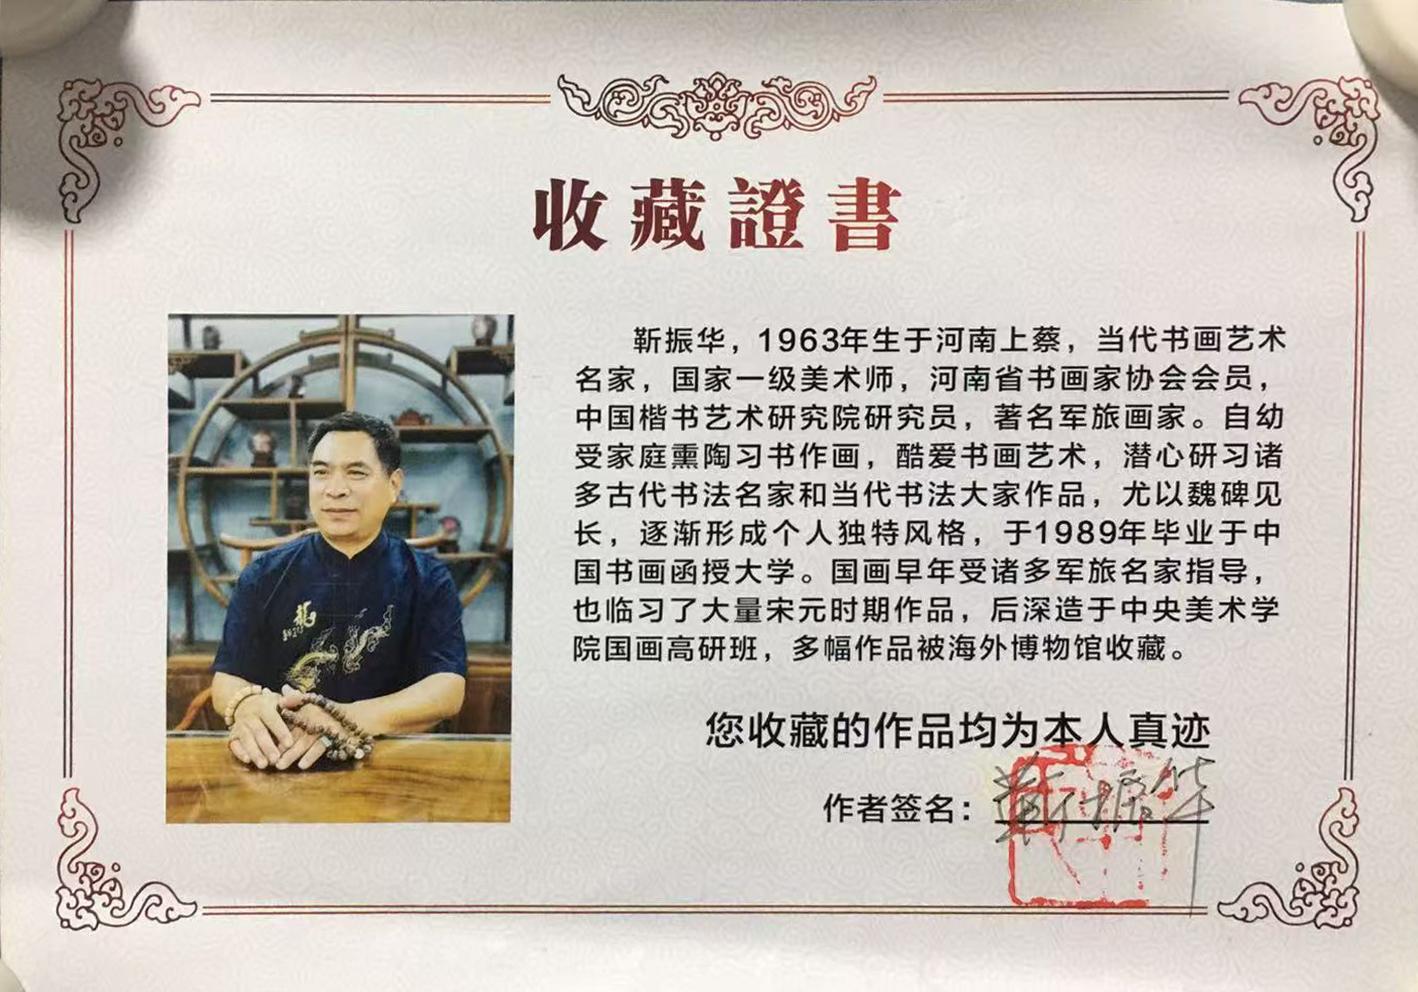 收藏證書
靳振华，1963年生于河南上蔡，当代书画艺术
名家，国家一级美术师，河南省书画家协会会员，
中国楷书艺术研究院研究员，著名军旅画家。自幼
受家庭熏陶习书作画，酷爱书画艺术，潜心研习诸
多古代书法名家和当代书法大家作品，尤以魏碑见
长，逐渐形成个人独特风格，于1989年毕业于中
国书画函授大学。国画早年受诸多军旅名家指导，
也临习了大量宋元时期作品，后深造于中央美术学
院国画高研班，多幅作品被海外博物馆收藏。
龍
您收藏的作品均为本人真迹
作者签名：靳振华